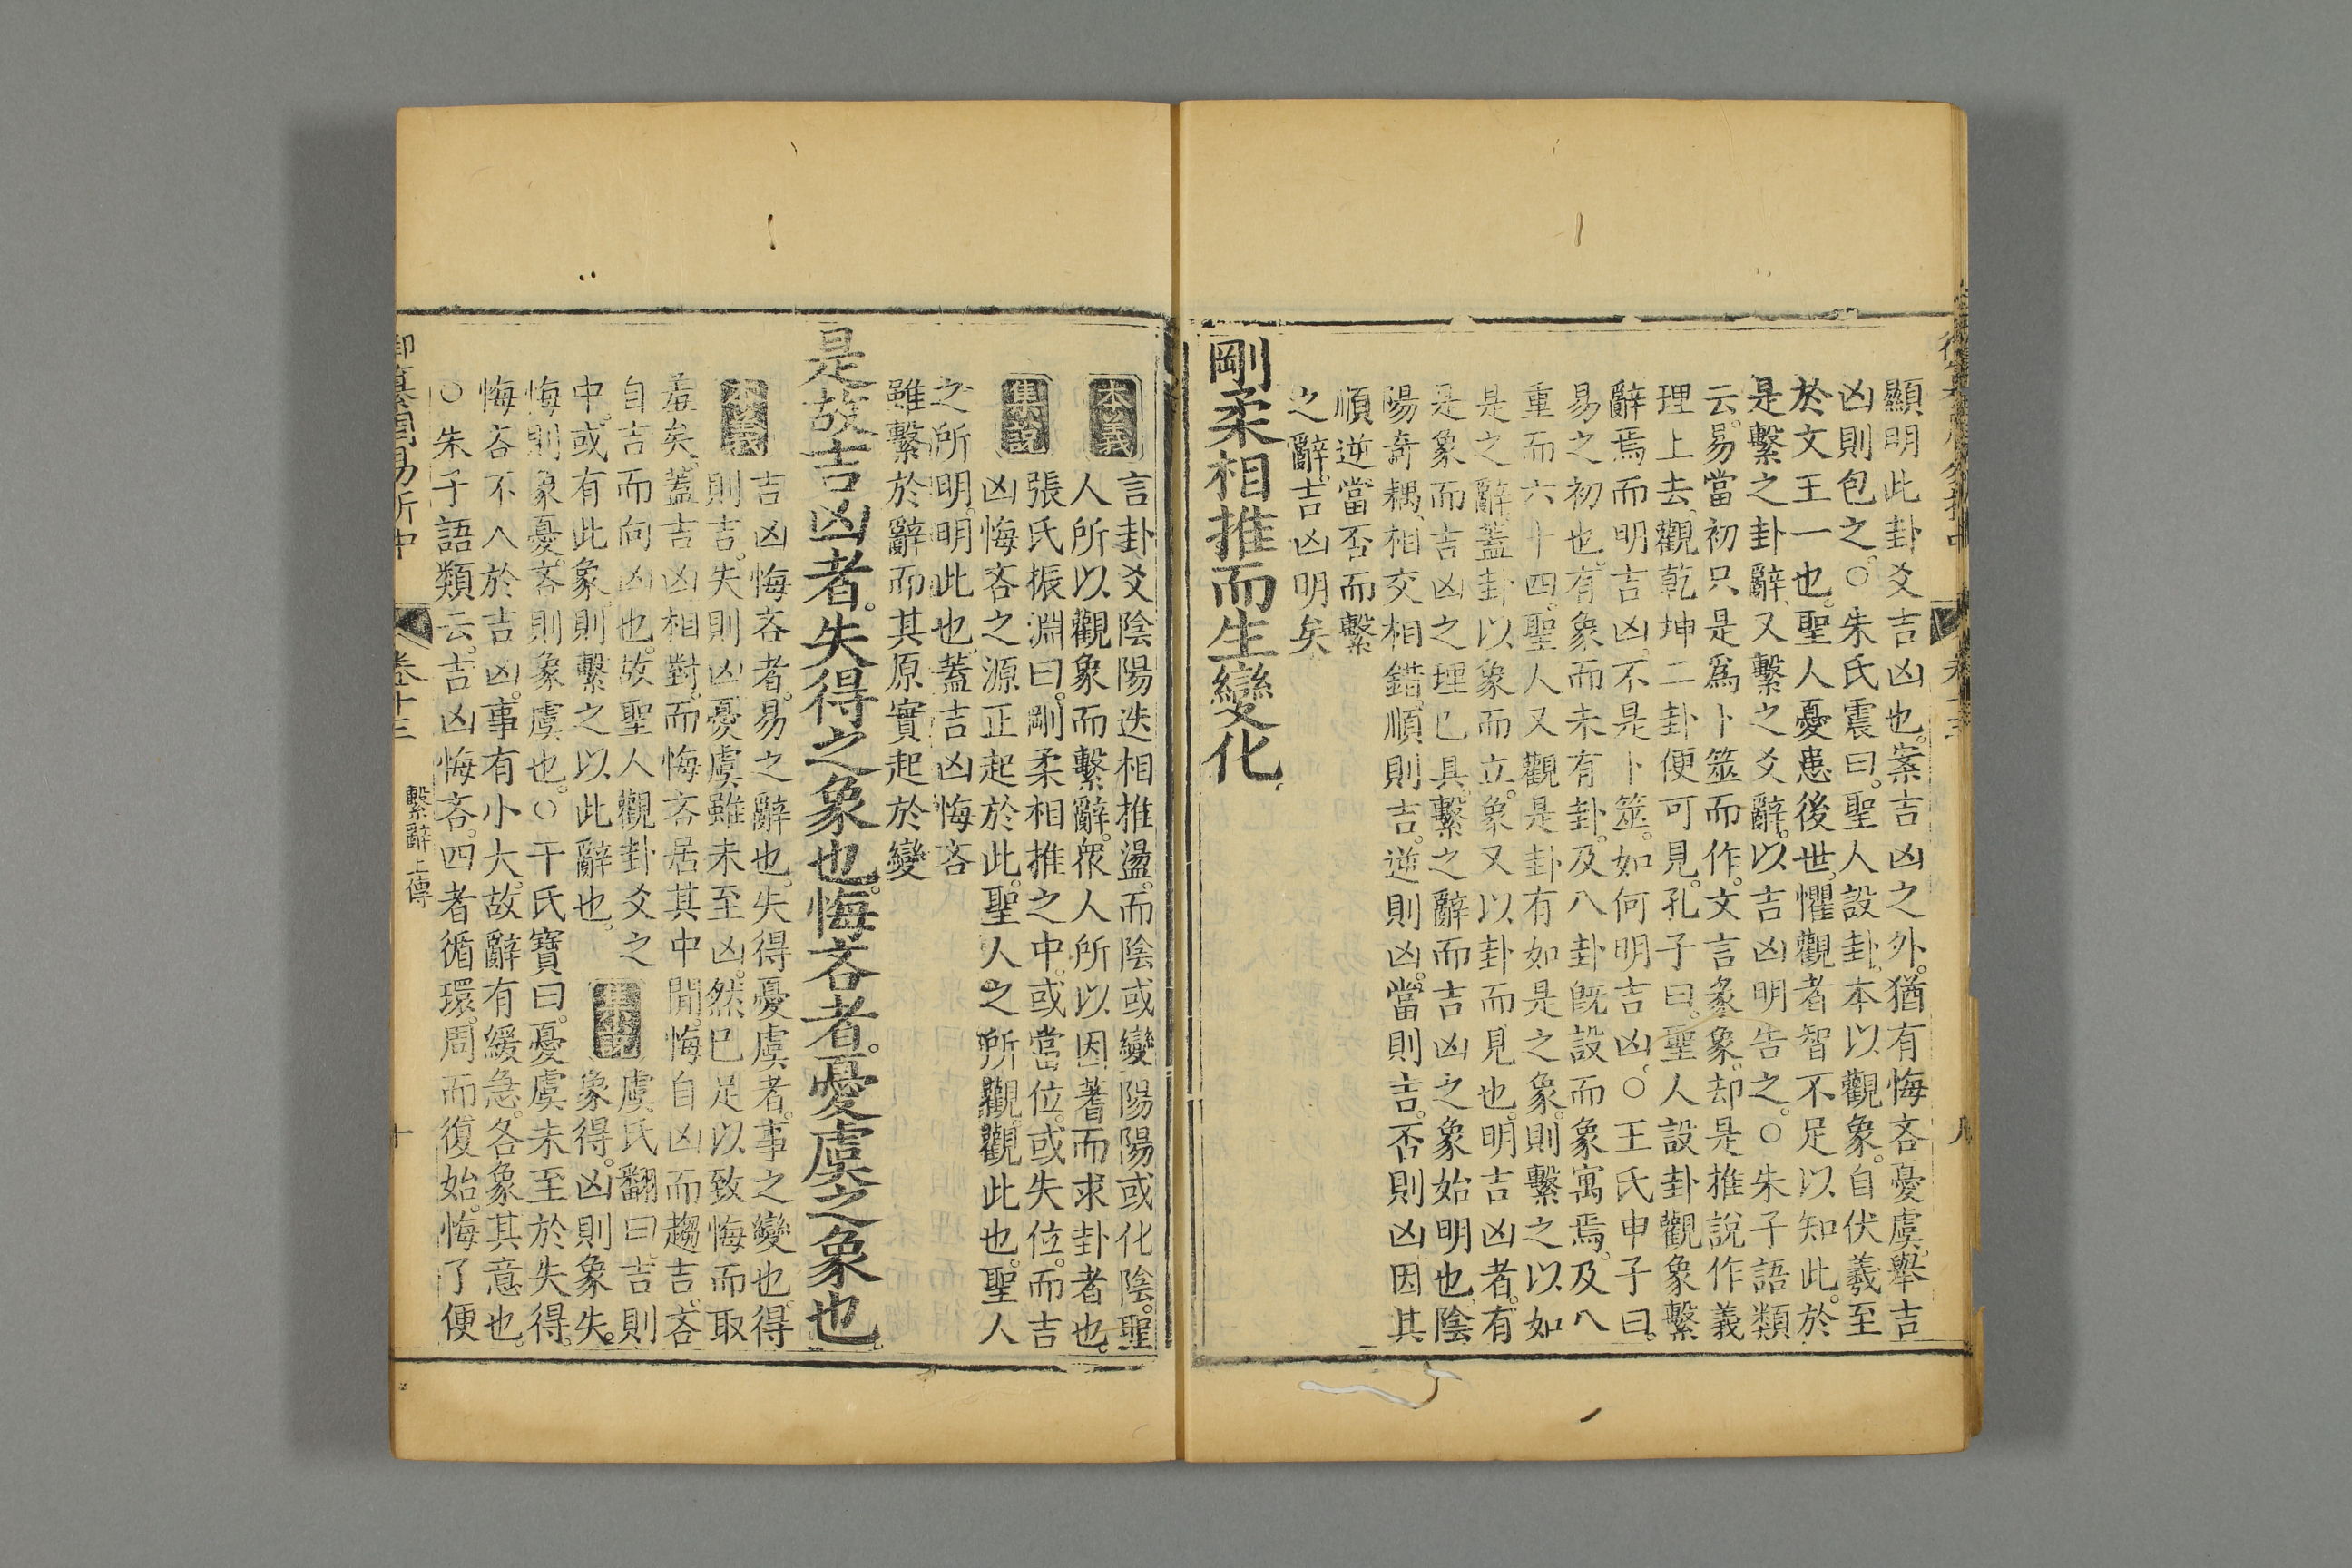 顯明此卦爻吉凶也。案吉凶之外。猶有悔吝憂虞。舉吉
凶則包之。○朱氏震曰。聖人設卦。本以觀象。自伏羲至
於文王一也。聖人憂患後世。懼觀者智不足以知此。於
是繫之卦辭。又繫之爻辭。以吉凶明告之。○朱子語類
云。易當初只是爲卜筮而作。文言彖象。却是推說作義
理上去。觀乾坤二卦便可見。孔子曰。聖人設卦觀象繫
辭焉而明吉凶。不是卜筮。如何明吉凶。○王氏申子曰。
易之初也。有象而未有卦。及八卦旣設而象寓焉。及八
重而六十四。聖人又觀是卦有如是之象。則繫之以如
是之辭。蓋卦以象而立。象又以卦而見也。明吉凶者。有
是象而吉凶之理已具。繫之辭而吉凶之象始明也。陰
陽奇耦。相交相錯。順則吉。逆則凶。當則吉。否則凶因其
順逆當否而繫
之辭。吉凶明矣
剛柔相推而生變化
本義 言卦爻陰陽迭相推盪。而陰或變陽陽或化陰。聖
人所以觀象而繫辭。衆人所以因蓍而求卦者也。
集說 張氏振淵曰。剛柔相推之中。或當位。或失位。而吉
凶悔吝之源正起於此。聖人之所觀。觀此也。聖人
之所明。明此也。蓋吉凶悔吝
雖繫於辭而其原實起於變
是故吉凶者。失得之象也。悔吝者。憂虞之象也。
本義 吉凶悔吝者。易之辭也。失得憂虞者。事之變也。得
則吉。失則凶憂虞雖未至凶。然已足以致悔而取
羞矣。蓋吉凶相對。而悔吝居其中間。悔自凶而趨吉。吝
自吉而向凶也。故聖人觀卦爻之
中。或有此象。則繫之以此辭也。
集說 虞氏翻曰。吉則
象得。凶則象失。
悔則象憂。吝則象虞也。○干氏寶曰。憂虞未至於失得。
悔吝不入於吉凶。事有小大。故辭有緩急。各象其意也。
○朱子語類云。吉凶悔吝。四者循環。周而復始。悔了便
御纂周易折中
卷十三
繫辭上傳
十